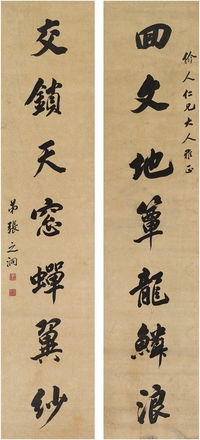 价人仁兄大人雅正
回文地簟龍鱗浪
交鎖天窓蟬翼紗
弟張之洞